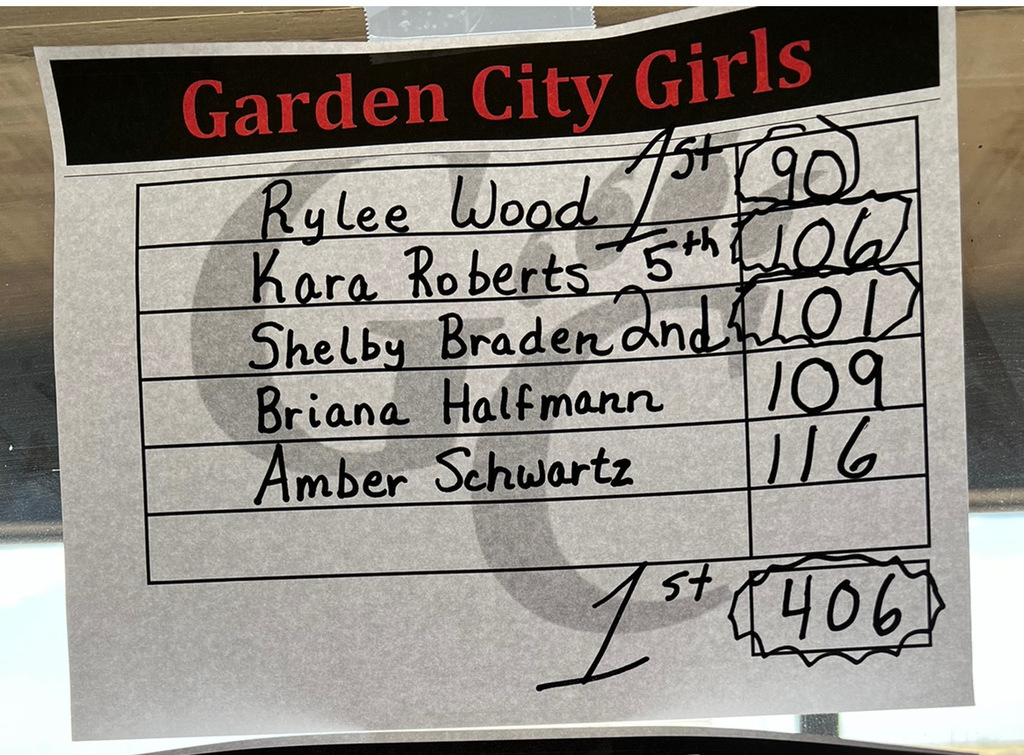 Garden City Girls
Rylee Wood 1st 90
Kara Roberts 5th 106
Shelby Braden 2nd 101
Briana Halfmann 109
Amber Schwartz 116
1st 406